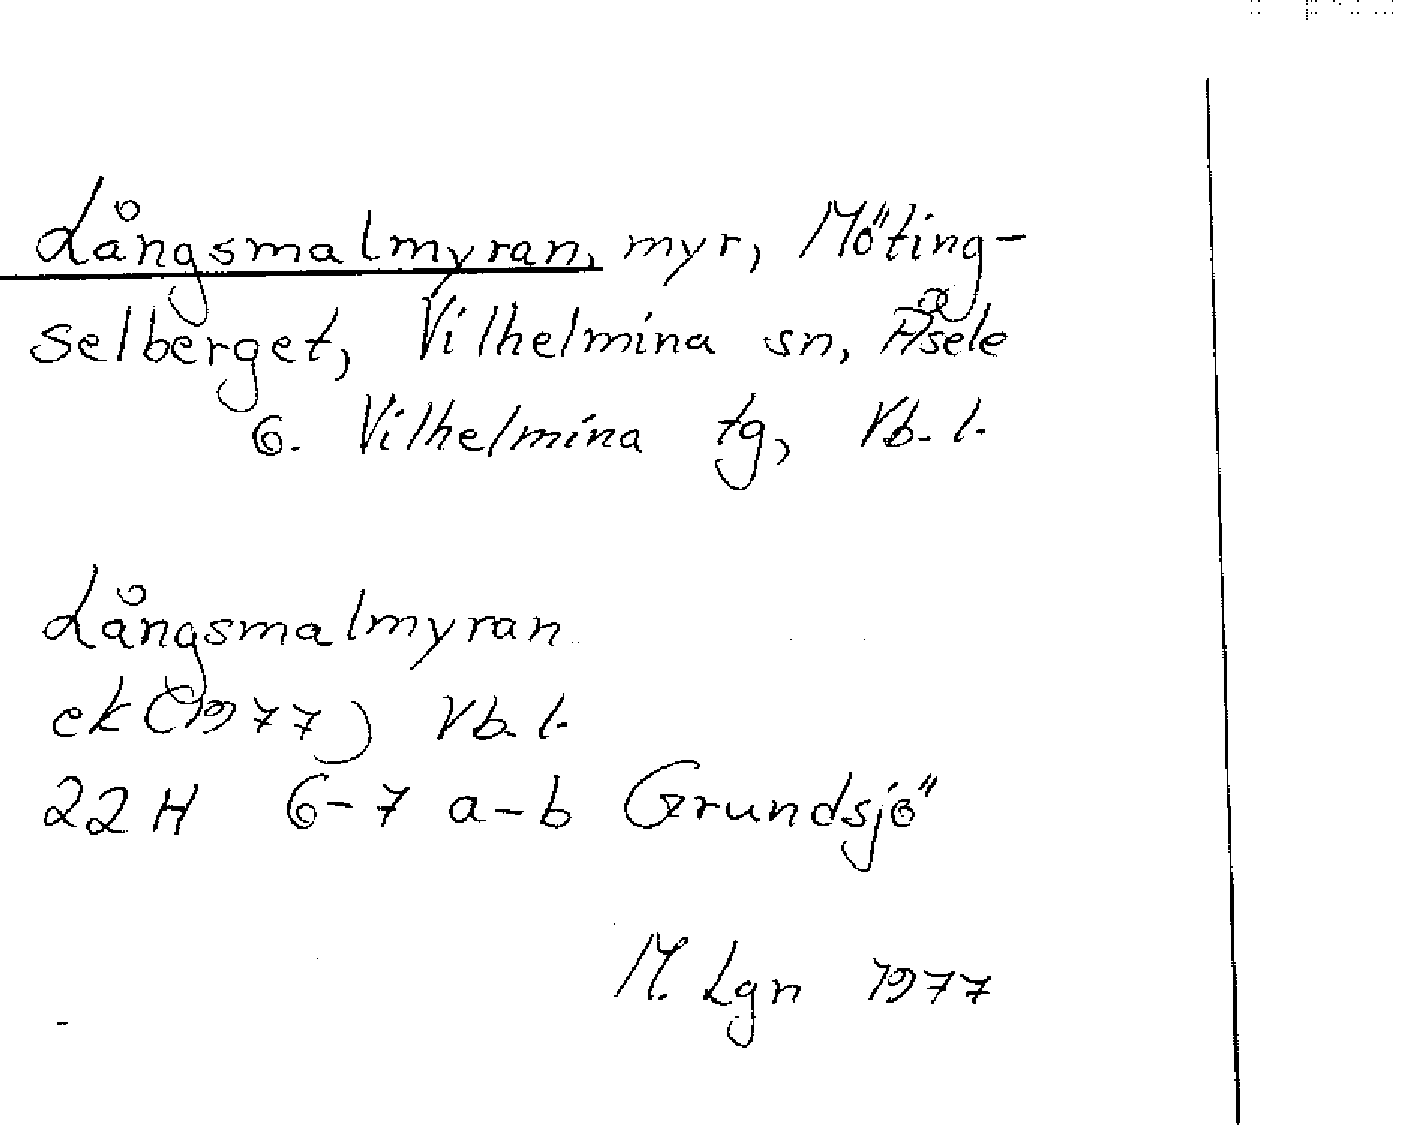 Långsmalmyran, myr, Möting-
selberget, Vilhelmina sn, Åsele
6. Vilhelmina tg, Vb. l.
Långsmalmyran
ek (1977) Vb. l.
22 H 6-7 a-b Grundsjö
M. Lgn 1977